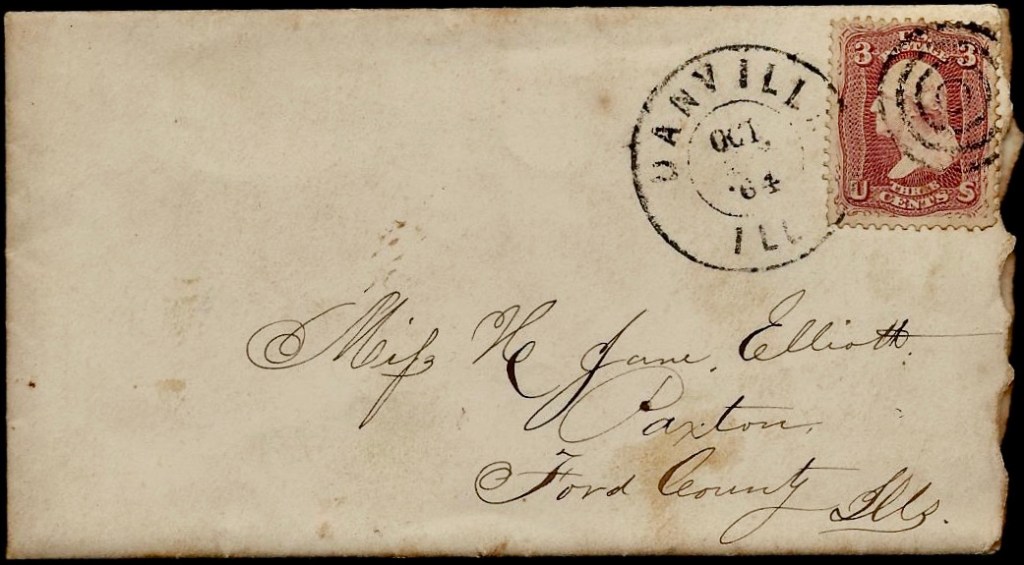 DANVILL
OCT.
'64
ILL
3 3
U THREE S
CENTS
Miſs H Jane Elliott.
Paxton,
Ford County Ills.